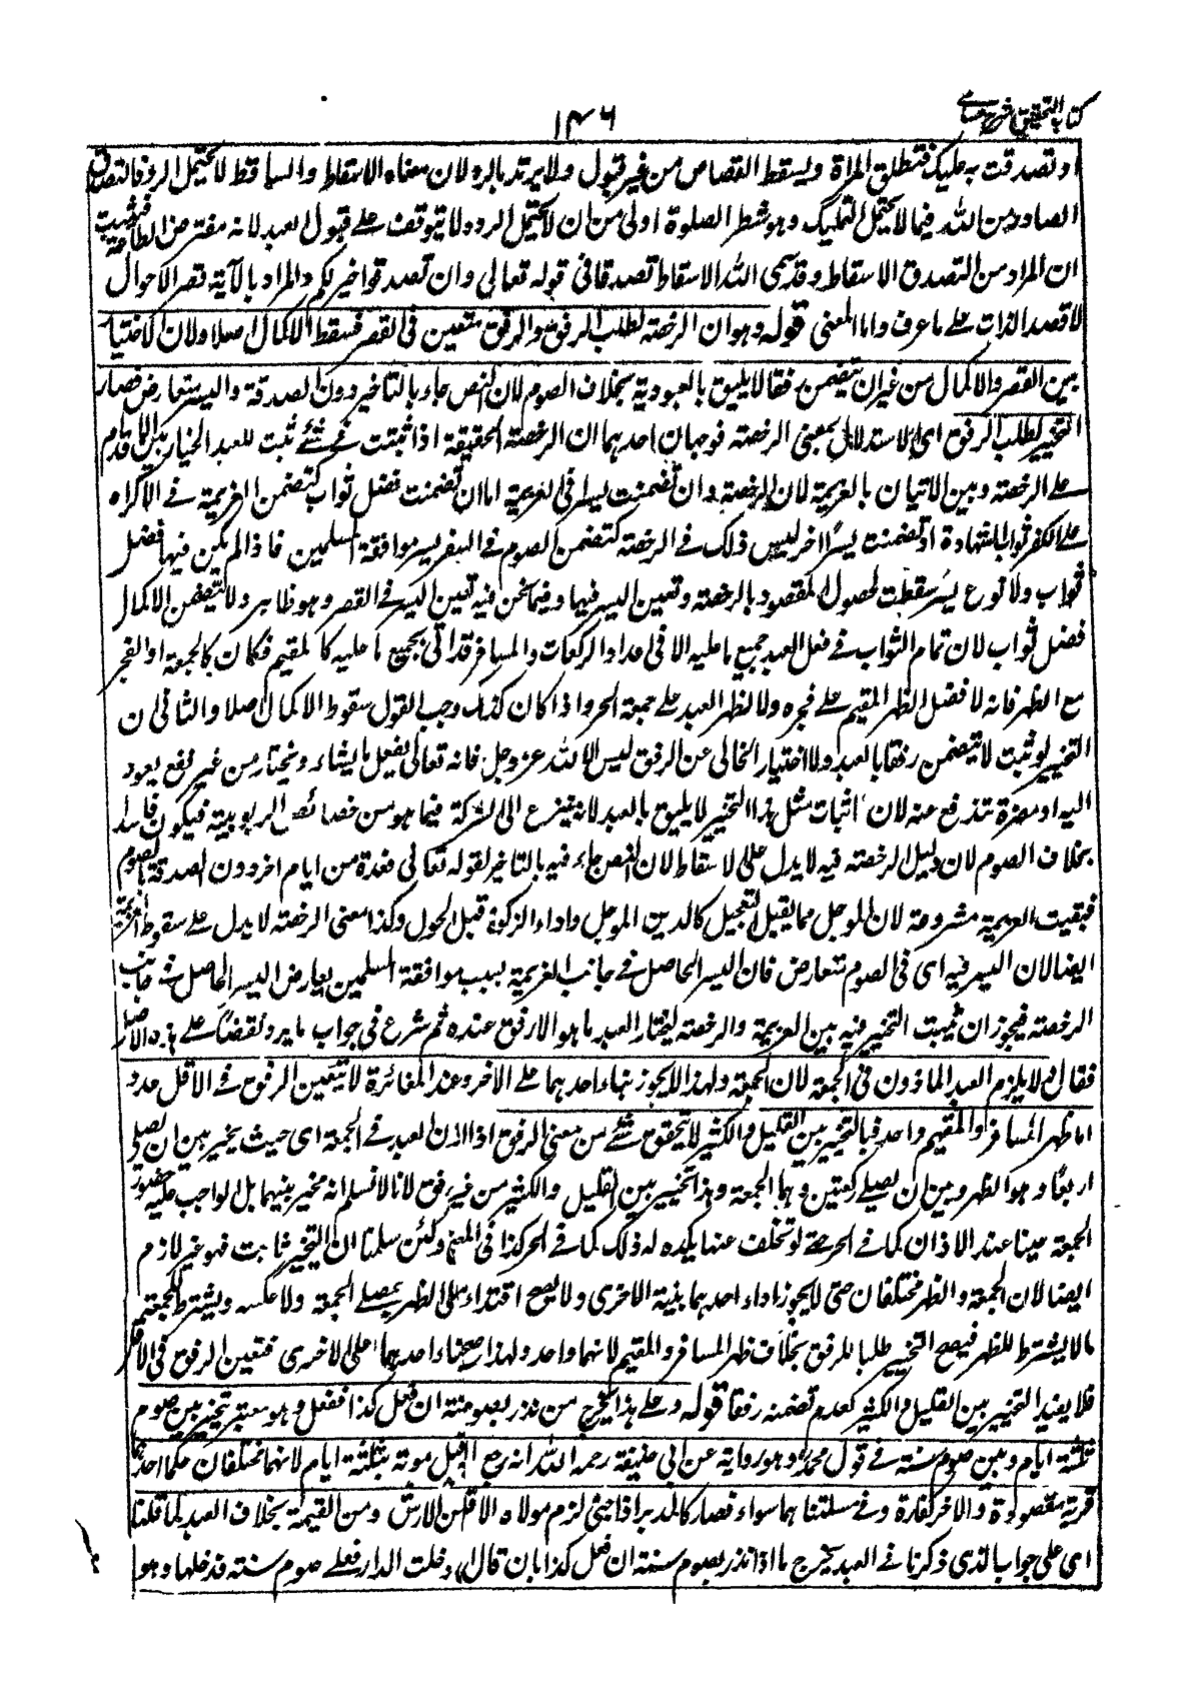 كتاب التحقيق شرح حسامي
١٤٦
او تصدقت به عليك فتطلق المراة ويسقط القصاص من غير قبول ولا يرتد بالرد لان معناه الاسقاط والساقط لا يحتمل الرد فالتصدق
الصادر من الله فيما لا يحتمل التمليك وهو شطر الصلوة اولى من ان لا يحتمل الرد ولا يتوقف على قبول العبد لانه مفترض الطاعة فثبت
ان المراد من التصدق الاسقاط وقد سمى الله الاسقاط تصدقا في قوله تعالى وان تصدقوا خير لكم والمراد بالآية قصر الاحوال
لا قصر الذات على ما عرف واما المعنى قوله وهو ان الرخصة لطلب الرفق والرفق متعين في القصر فسقط الاكمال اصلا ولان الاختيار
بين القصر والاكمال من غير ان يتضمن رفقا لا يليق بالعبودية بخلاف الصوم لان النص جاء بالتاخير دون الصدقة واليسر متعارض فصار
التخيير لطلب الرفق اي الاستدلال بمعنى الرخصة فوجهان احدهما ان الرخصة الحقيقة اذا ثبتت في شئ ثبت للعبد الخيار بين الاقدام
على الرخصة وبين الاتيان بالعزيمة لان الرخصة وان تضمنت يسرا في العزيمة اما ان تضمنت فضل ثواب كتضمن العزيمة في الاكراه
على الكفر ثواب الشهادة او تضمنت يسرًا اخر ليس ذلك في الرخصة كتضمن الصوم في السفر يسر موافقة المسلمين فاذا لم يكن فيها فضل
ثواب ولا نوع يسر سقطت لحصول المقصود بالرخصة وتعين اليسر فيها وفيما نحن فيه تعين اليسر في القصر وهو ظاهر ولا يتضمن الاكمال
فضل ثواب لان تمام الثواب في فعل العبد جميع ما عليه لا في اعداد الركعات والمسافر قد اتى بجميع ما عليه كالمقيم فكان كالجمعة او الفجر
مع الظهر فانه لا فضل لظهر المقيم على فجره ولا لظهر العبد على جمعة الحر واذا كان كذلك وجب القول بسقوط الاكمال اصلا والثاني ان
التخيير لو ثبت لا يتضمن رفقا بالعبد ولا اختيار الخالي عن الرفق ليس الا لله عز وجل فانه تعالى يفعل ما يشاء ويختار من غير نفع يعود
اليه او مضرة تندفع عنه لان اثبات مثل هذا التخيير لا يليق بالعبد لانه ينزع الى الشركة فيما هو من خصائص الربوبية فيكون فاسدا
بخلاف الصوم لان دليل الرخصة فيه لا يدل على الاسقاط لان النص جاء فيه بالتاخير لقوله تعالى فعدة من ايام اخر دون الصدقة بالصوم
فبقيت العزيمة مشروعة لان المؤجل مما يقبل التعجيل كالدين المؤجل واداء الزكوة قبل الحول وكذا معنى الرخصة لا يدل على سقوط العزيمة
ايضا لان اليسر فيه اي في الصوم متعارض فان اليسر الحاصل في جانب العزيمة بسبب موافقة المسلمين يعارض اليسر الحاصل في جانب
الرخصة فيجوز ان يثبت التخيير فيه بين العزيمة والرخصة ليختار العبد ما هو الارفق عنده ثم شرع في جواب ما يرد نقضا على هذه الاصل
فقال ولا يلزم العبد الماذون في الجمعة لان الجمعة ولهذا لا يجوز بناء احدهما على الاخر وعند المغائرة لا يتعين الرفق في الاقل عددا
اما ظهر المسافر والمقيم واحد فبالتخيير بين القليل والكثير لا يتحقق شئ من معنى الرفق اذا اذن لعبده في الجمعة اي حيث يخير بين ان يصلي
اربعا وهو الظهر وبين ان يصلي ركعتين وهما الجمعة وهذا تخيير بين القليل والكثير من غير رفق لانا لا نسلم انه مخير بينهما بل الواجب عليه حضور
الجمعة عينا عند الاذان كما في الحر حتى لو تخلف عنها يكره له ذلك كما في الحر كذا في المغني ولئن سلمنا ان التخيير ثابت فهو غير لازم
ايضا لان الجمعة والظهر مختلفان حتى لا يجوز اداء احدهما بنية الاخرى ولا يصح اقتداء مصلي الظهر بمصلي الجمعة ولا عكسه ويشترط للجمعة
ما لا يشترط للظهر فيصح التخيير طلبا للرفق بخلاف ظهر المسافر والمقيم لانهما واحد ولهذا صح بناء احدهما على الاخرى فتعين الرفق في الاقل
فلا يفيد التخيير بين القليل والكثير لعدم تضمنه رفقا قوله وعلى هذا يخرج من نذر بصوم سنة ان فعل كذا ففعل وهو معسر تخير بين صوم
ثلثة ايام وبين صوم سنة في قول محمد وهو رواية عن ابي حنيفة رحمه الله انه رجع اليه قبل موته بثلثة ايام لانهما مختلفان حكما احدهما
قربة مقصودة والاخر كفارة وفي مسئلتنا هما سواء فصار كالمدبر اذا جنى لزم مولاه الاقل من الارش ومن القيمة بخلاف العبد لما قلنا
اي على جواب الذي ذكرنا في العبد يخرج ما اذا نذر بصوم سنة ان فعل كذا بان قال ان دخلت الدار فعلي صوم سنة فدخلها وهو